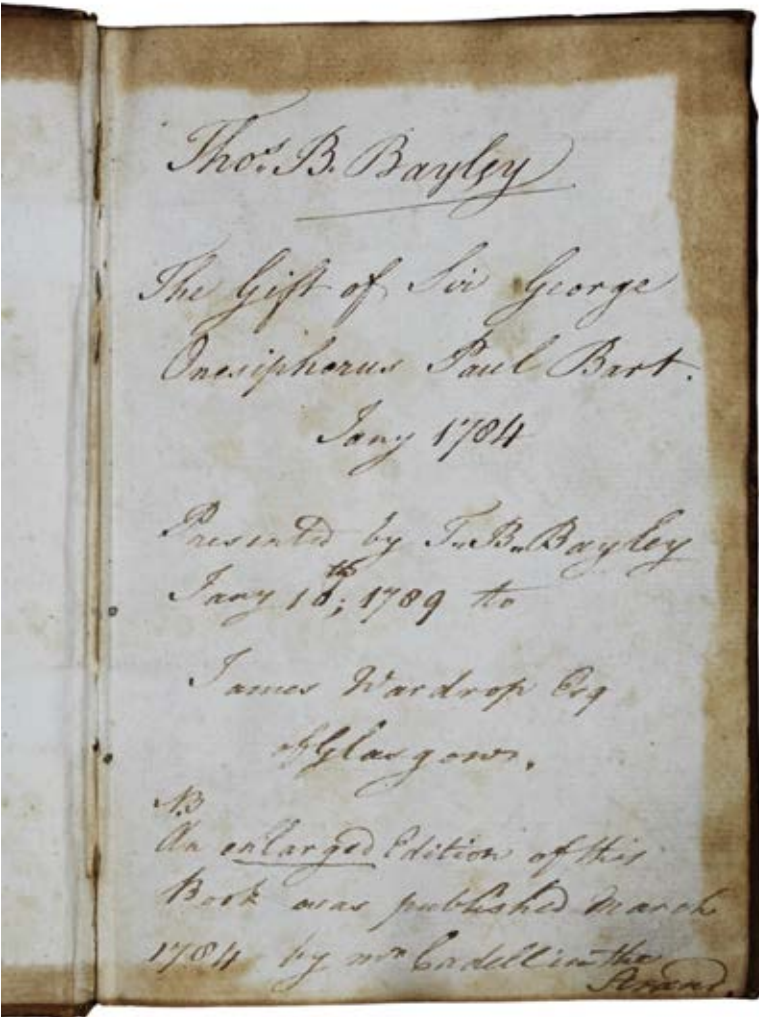 Thos. B. Bayley
The Gift of Sir George
Onesiphorus Paul Bart.
Jany 1784
Presented by T. B. Bayley
Jany 16th; 1789 to
James Wardrop Esq
of Glasgow.
NB
An enlarged Edition of this
Book was published March
1784 by Mr Cadell in the
Strand.